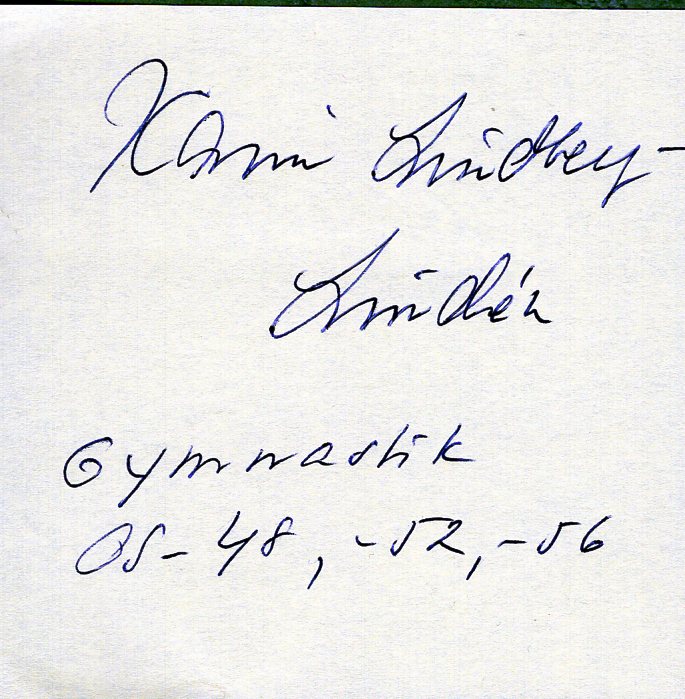 Karin Lindberg-
Lindén
Gymnastik
OS-48, -52, -56